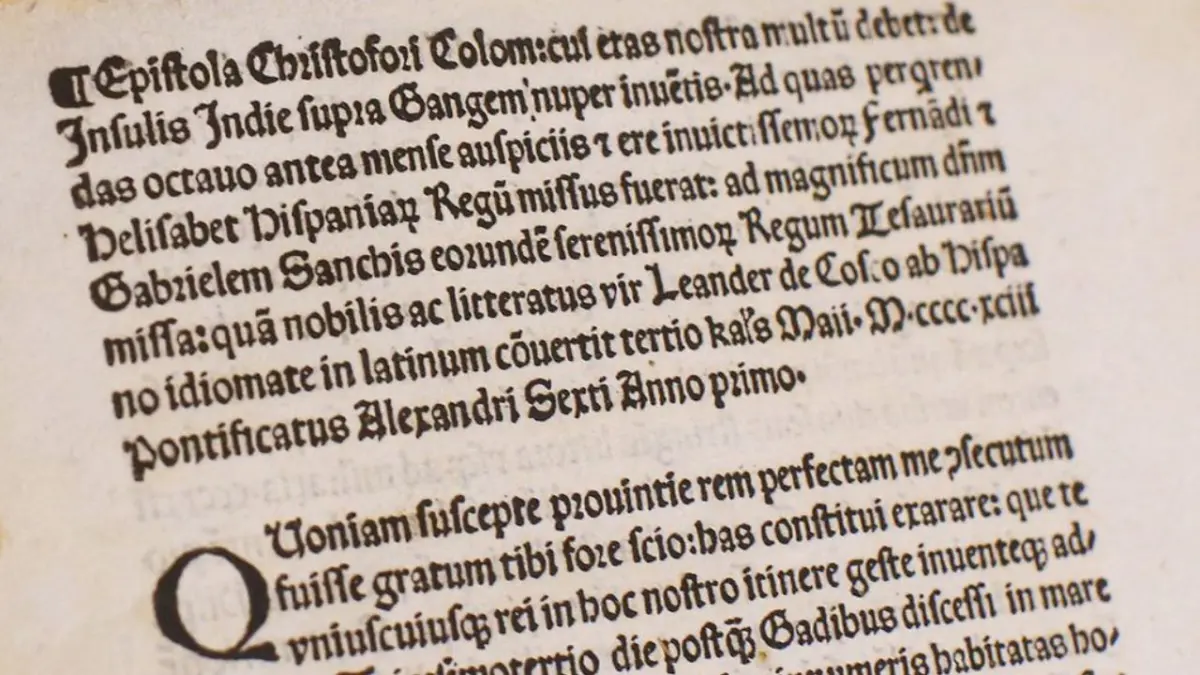 ¶ Epiſtola Chriſtofori Colom: cui etas noſtra multū debet: de
Inſulis Indie ſupra Gangem nuper inuētis. Ad quas perqren/
das octauo antea menſe auſpiciis ⁊ ere inuictiſſemoꝝ Fernādi ⁊
Heliſabet Hiſpaniaꝝ Regū miſſus fuerat: ad magnificum dn̄m
Gabrielem Sanchis eorundē ſereniſſimoꝝ Regum Teſaurariū
miſſa: quā nobilis ac litteratus vir Leander de Coſco ab Hiſpa
no idiomate in latinum cōuertit tertio kal's Maii. M. cccc. xciii
Pontificatus Alexandri Sexti Anno primo.
QUoniam ſuſcepte prouintie rem perfectam me ꝯſecutum
fuiſſe gratum tibi fore ſcio: has conſtitui exarare: que te
vniuſcuiuſqꝫ rei in hoc noſtro itinere geſte inuenteqꝫ ad/
die poſtqꝫ̄ Gadibus diſceſſi in mare
innumeris habitatas ho/